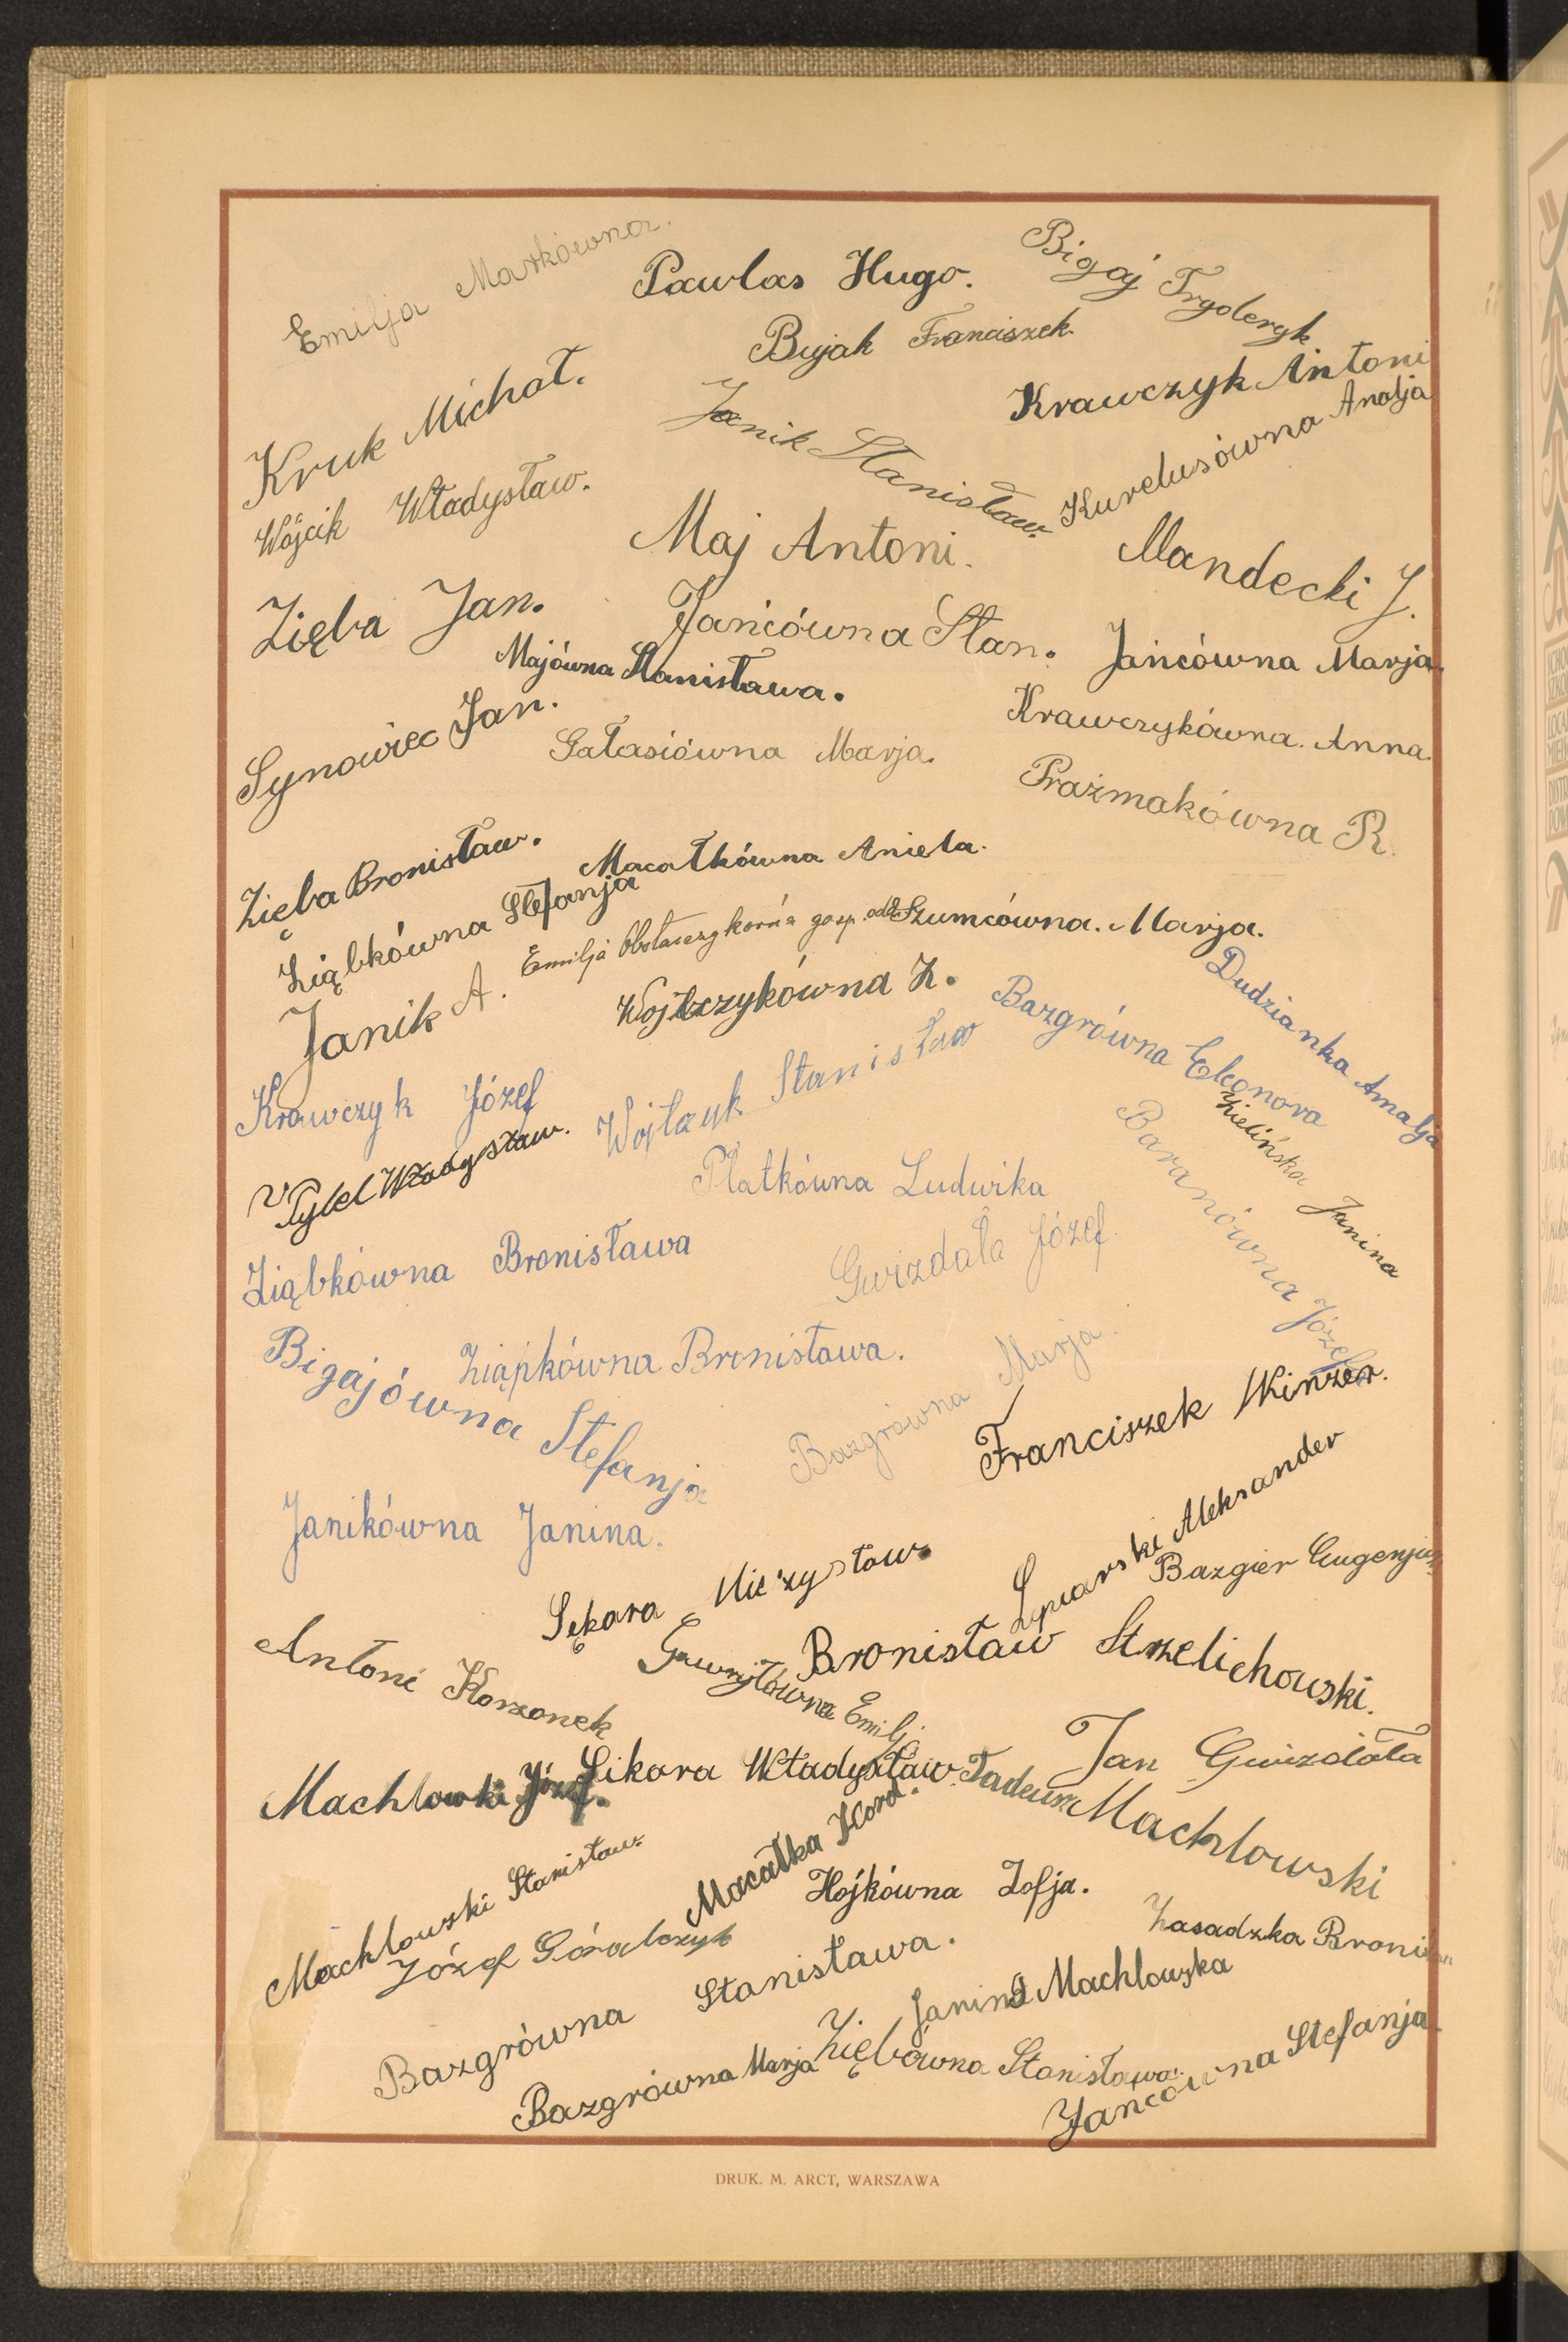 Emilja Markówna.
Pawlas Hugo.
Bigaj Fryderyk
Bujak Franciszek.
Krawczyk Antoni
Kruk Michał.
Janik Stanisław.
Kurelusówna Analja
Wójcik Władysław.
Maj Antoni.
Mandecki J.
Zięba Jan.
Jańcówna Stan.
Jańcówna Marja.
Majówna Stanisława.
Synowiec Jan.
Krawczykówna. Anna.
Gałasiówna Marja.
Prażmakówna R.
Zięba Bronisław.
Macałkówna Aniela.
Ziąbkówna Stefanja
Emilja gosp. odd.
Szumcówna. Marja.
Janik A.
Wojtczykówna Z.
Dudzianka Amalja
Bazgrówna Eleonora
Krawczyk Józef
Wojtczyk Stanisław
Zielińska Janina
Baranówna Józefa
Pytel Władysław.
Płatkówna Ludwika
Ziąbkówna Bronisława
Gwizdała Józef.
Bigajówna Stefanja
Ziąpkówna Bronisława.
Bazgrówna Marja.
Franciszek Winzer.
Janikówna Janina.
Aleksander
Sękara Mieczysław.
Bazgier Eugenjusz
Antoni Korzonek
Bronisław Strzelichowski.
Emilja
Jan Gwizdała
Machlowski Józef.
Sikora Władysław.
Tadeusz Machlowski
Macałka Karol.
Machlowski Stanisław.
Hojkówna Zofja.
Józef Góralczyk
Zasadzka Bronisław
Bazgrówna Stanisława.
Janina Machlowska
Bazgrówna Marja
Ziębówna Stanisława.
Jancówna Stefanja.
DRUK. M. ARCT, WARSZAWA